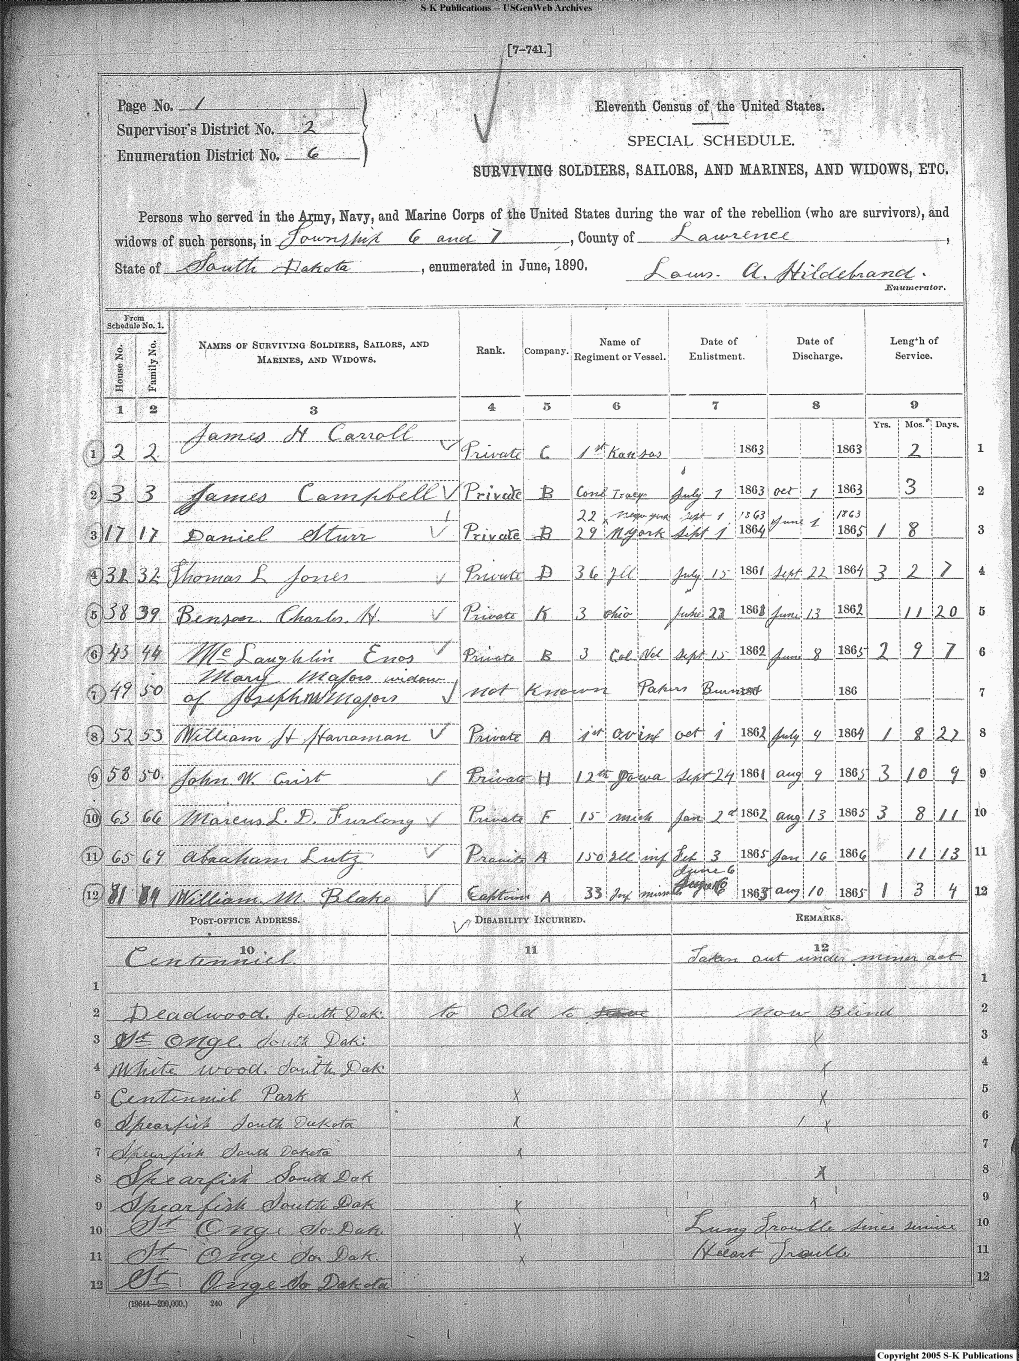 S-K Publications -- USGenWeb Archives
[7-741.]
Page No. 1
Supervisor's District No. 2
Enumeration District No. 6
Eleventh Census of the United States.
SPECIAL SCHEDULE.
SURVIVING SOLDIERS, SAILORS, AND MARINES, AND WIDOWS, ETC.
Persons who served in the Army, Navy, and Marine Corps of the United States during the war of the rebellion (who are survivors), and
widows of such persons, in Township 6 and 7, County of Lawrence,
State of South Dakota, enumerated in June, 1890.
Louis. A. Hildebrand.
Enumerator.
From Schedule No. 1.
House No. Family No. NAMES OF SURVIVING SOLDIERS, SAILORS, AND MARINES, AND WIDOWS. Rank. Company. Name of Regiment or Vessel. Date of Enlistment. Date of Discharge. Length of Service.
1 2 3 4 5 6 7 8 9
Yrs. Mos. Days.
1 2 2 James H Carroll Private C 1st Kansas 1863 1863 2 1
2 3 3 James Campbell Private B July 1 1863 oct 1 1863 3 2
22 New york Sept 1 1863 1863
3 17 17 Daniel Sturr Private B 29 N York Sept 1 1864 June 1 1865 1 8 3
4 32 32 Thomas L Jones Private D 36 Ill July 15 1861 Sept 22 1864 3 2 7 4
5 38 39 Benson Charles H. Private K 3 Ohio June 22 1861 June 13 1862 11 20 5
6 43 44 McLaughlin Enos Private B 3 Col Vol Sept 15 1862 June 8 1865 2 9 7 6
Mary Majors widow
7 49 50 of Joseph Majors not Known Papers Burned 186 7
8 52 53 William H Harraman Private A 1st inf oct 1 1862 July 4 1864 1 8 27 8
9 58 50 John W. Crist Private H 12th Iowa Sept 24 1861 aug 9 1865 3 10 9 9
10 63 66 Marcus. L. D. Furlong Private F 15 mich Jan 2d 1862 aug 13 1865 3 8 11 10
11 65 69 Abraham Lutz Private A 150 Ill inf Feb 3 1865 Jan 16 1866 11 13 11
June 6
12 81 William. M. Blake Captain A 33 1863 aug 10 1865 1 3 4 12
POST-OFFICE ADDRESS. DISABILITY INCURRED. REMARKS.
10 11 12
1 Centenniel. Taken out under miner act 1
2 Deadwood. South Dak. to Old to now Blind 2
3 St Onge. South Dak: x 3
4 White wood. South. Dak x 4
5 Centenniel Park x x 5
6 Spearfish South Dakota x x 6
7 Spearfish South Dakota x 7
8 Spearfish South Dak x 8
9 Spearfish South Dak x x 9
10 St Onge So. Dak x Lung Trouble since service 10
11 St Onge So Dak. x Heart Trouble 11
12 St Onge So Dakota 12
(19644—200,000.) 240
Copyright 2005 S-K Publications